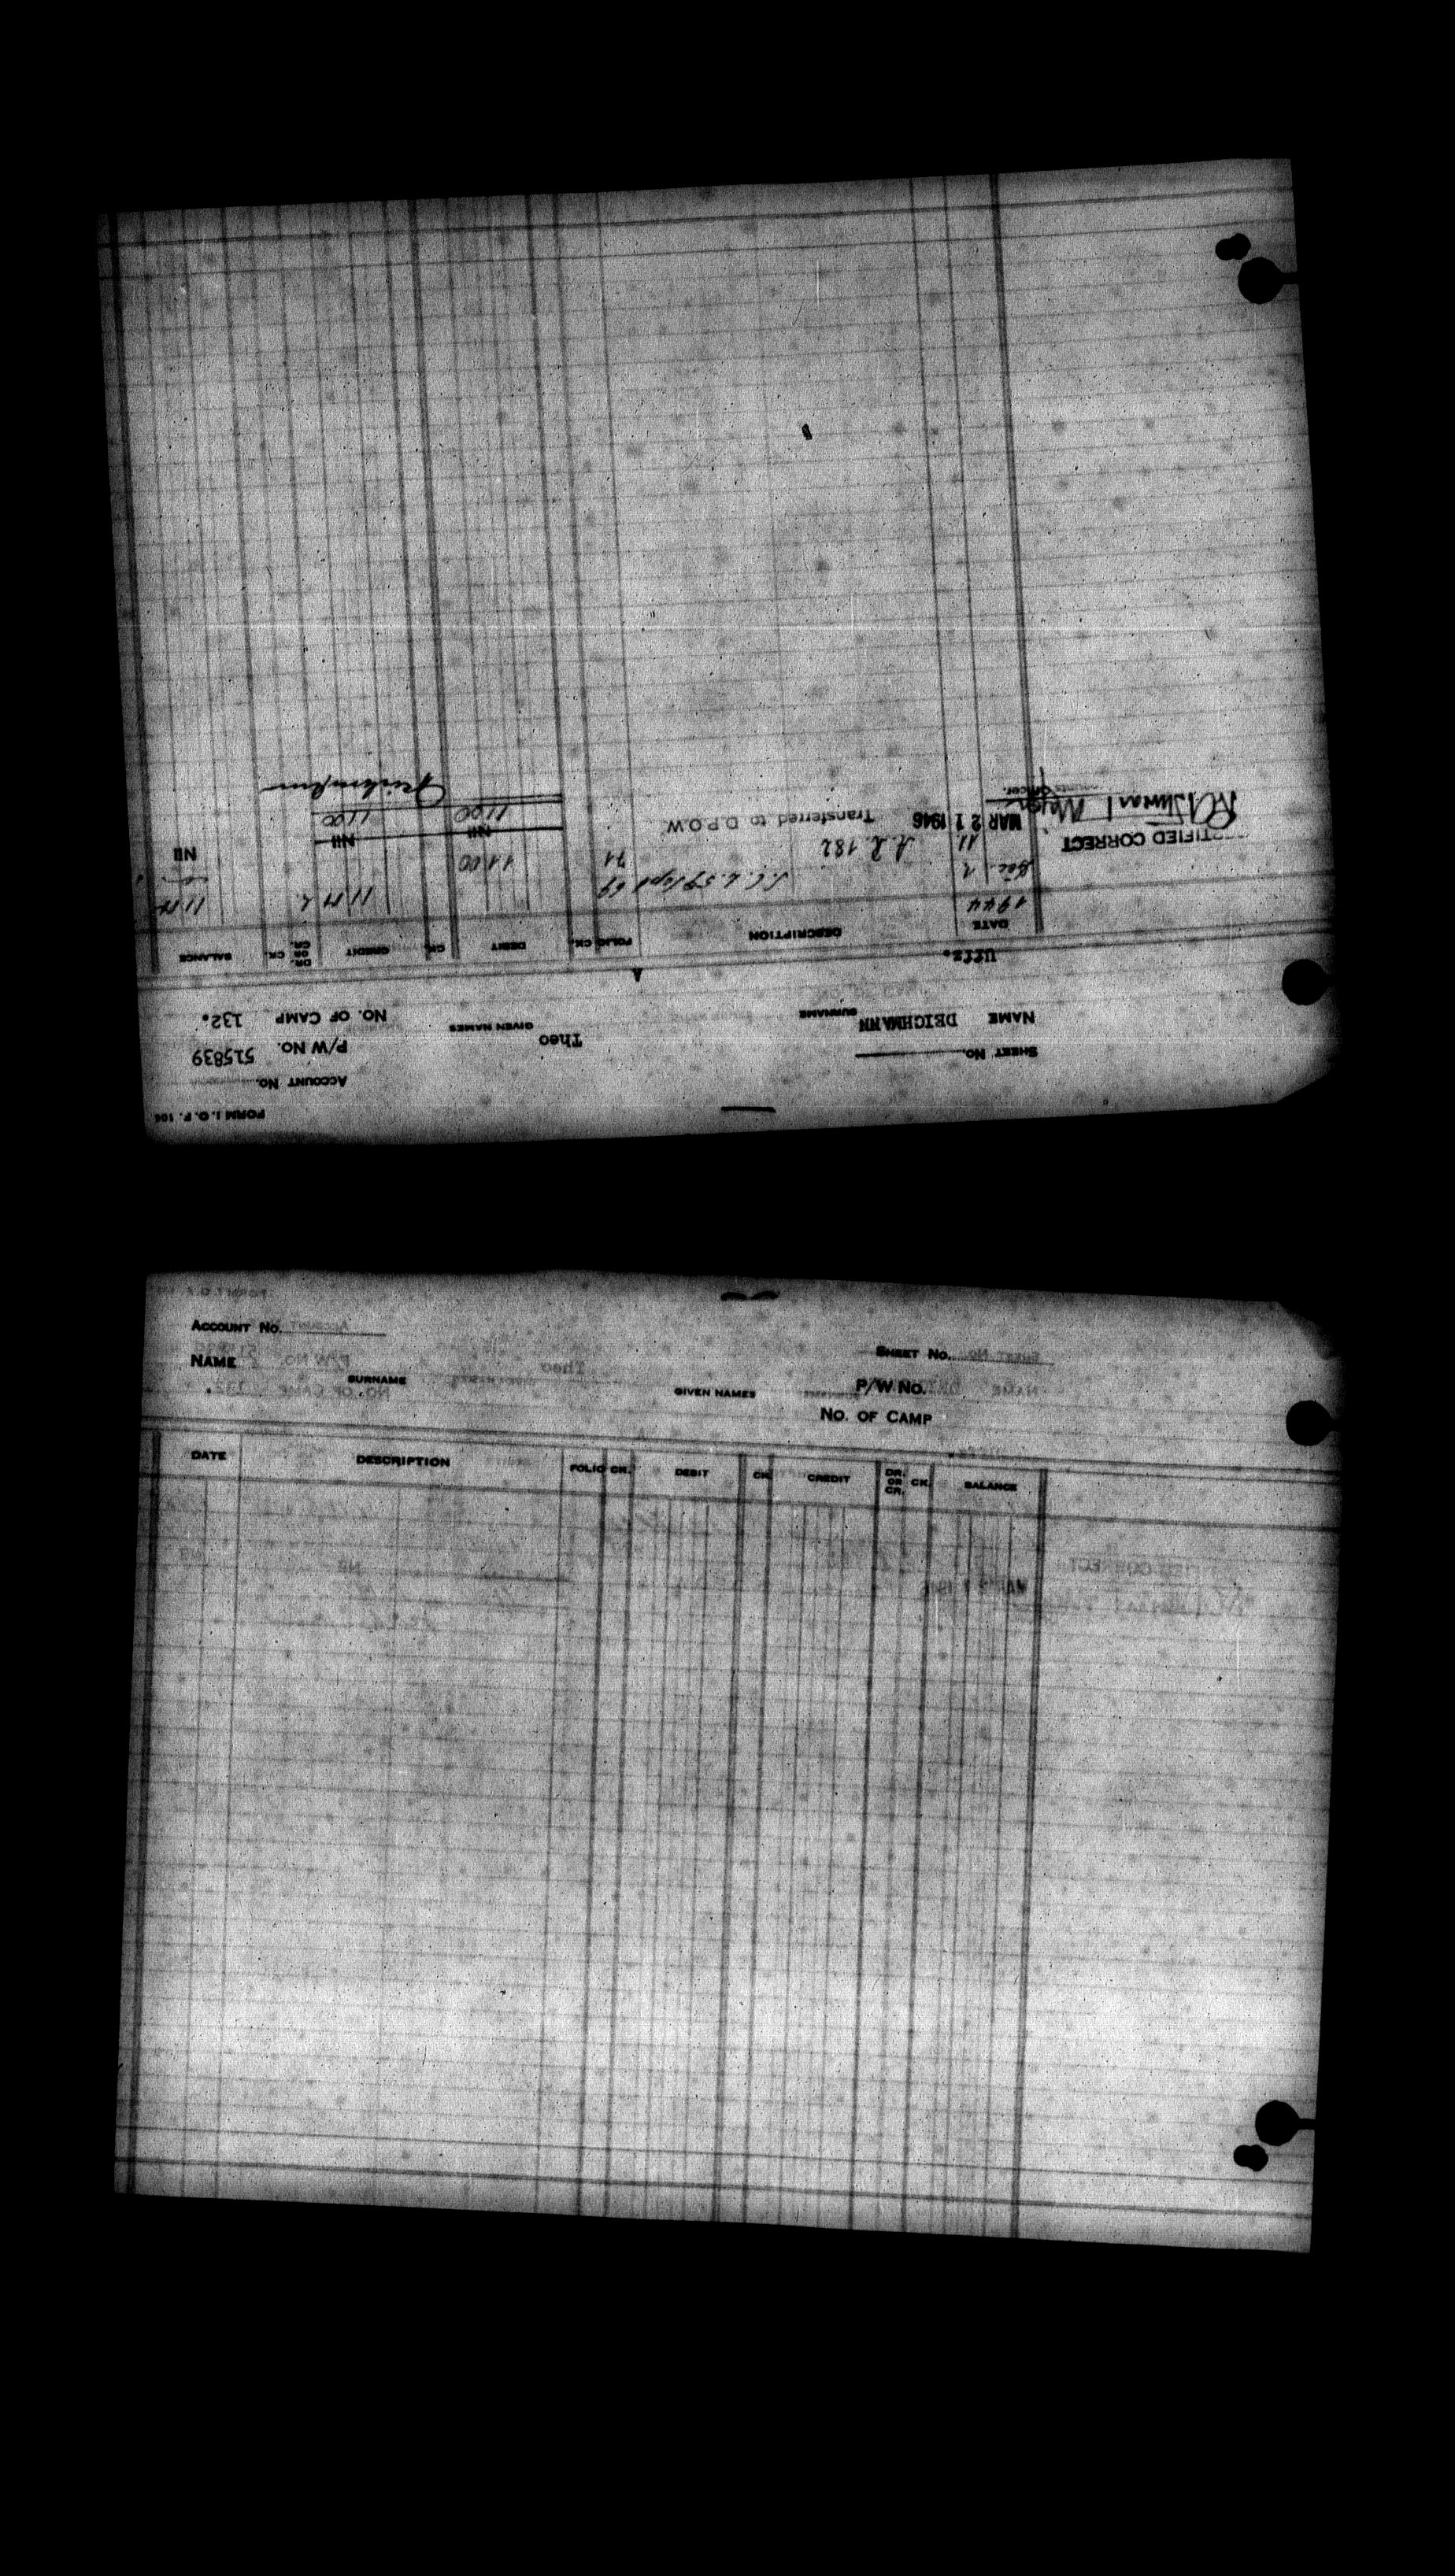 FORM I.O.F. 106
SHEET No.
ACCOUNT No.
P/W No. 515839
NAME DEICHMANN Theo
SURNAME GIVEN NAMES
NO. OF CAMP 132.
Uffz.
DATE DESCRIPTION FOLIO CK. DEBIT CK. CREDIT DR. OR CR. CK. BALANCE
1944
2 69
11 A.L. 182 71 11 00 Nil
CERTIFIED CORRECT
MAR 21 1946 Transferred to D.P.O.W. Nil Nil
11 00 11 00
Major
Officer.
ACCOUNT No.
SHEET No.
NAME
SURNAME GIVEN NAMES
P/W No.
No. OF CAMP
DATE DESCRIPTION FOLIO CK. DEBIT CK. CREDIT DR. OR CR. CK. BALANCE